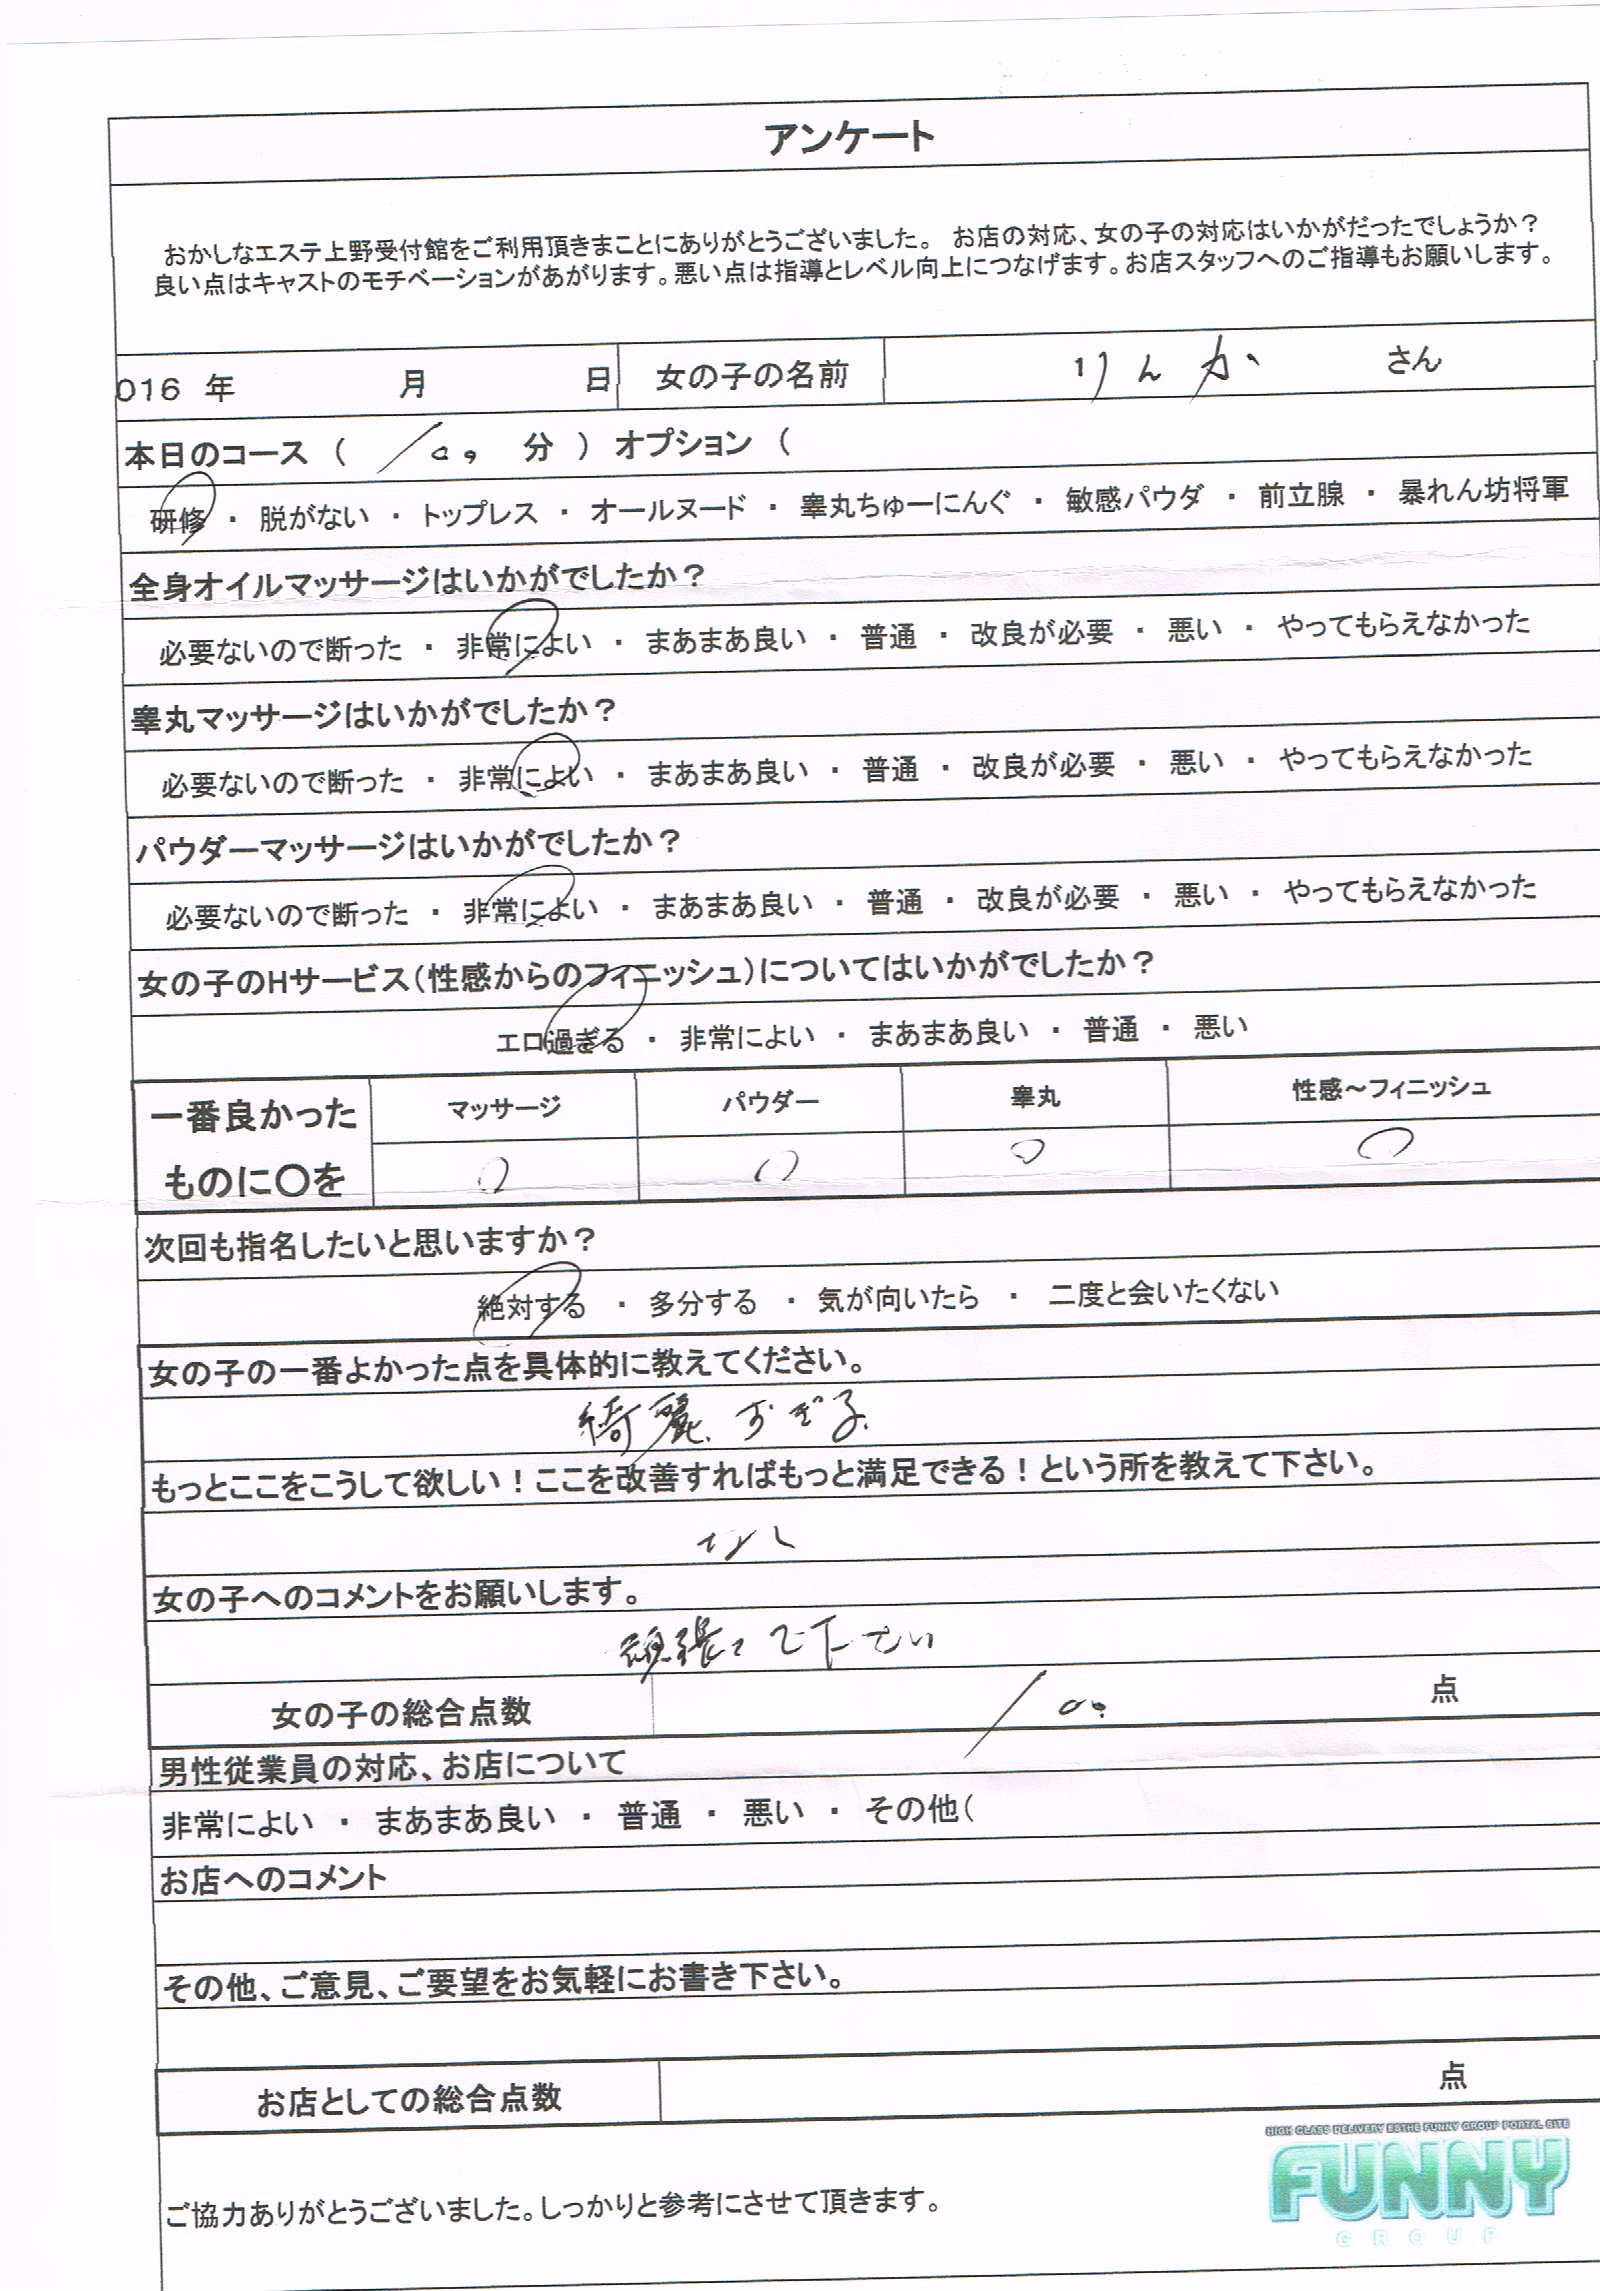 アンケート
おかしなエステ上野受付館をご利用頂きまことにありがとうございました。 お店の対応、女の子の対応はいかがだったでしょうか？
良い点はキャストのモチベーションがあがります。悪い点は指導とレベル向上につなげます。お店スタッフへのご指導もお願いします。
016 年 月 日 女の子の名前 りんか さん
本日のコース （ 100 分 ） オプション （
研修 ・ 脱がない ・ トップレス ・ オールヌード ・ 睾丸ちゅーにんぐ ・ 敏感パウダ ・ 前立腺 ・ 暴れん坊将軍
全身オイルマッサージはいかがでしたか？
必要ないので断った ・ 非常によい ・ まあまあ良い ・ 普通 ・ 改良が必要 ・ 悪い ・ やってもらえなかった
睾丸マッサージはいかがでしたか？
必要ないので断った ・ 非常によい ・ まあまあ良い ・ 普通 ・ 改良が必要 ・ 悪い ・ やってもらえなかった
パウダーマッサージはいかがでしたか？
必要ないので断った ・ 非常によい ・ まあまあ良い ・ 普通 ・ 改良が必要 ・ 悪い ・ やってもらえなかった
女の子のHサービス（性感からのフィニッシュ）についてはいかがでしたか？
エロ過ぎる ・ 非常によい ・ まあまあ良い ・ 普通 ・ 悪い
一番良かった マッサージ パウダー 睾丸 性感～フィニッシュ
ものに〇を 〇 〇 〇 〇
次回も指名したいと思いますか？
絶対する ・ 多分する ・ 気が向いたら ・ 二度と会いたくない
女の子の一番よかった点を具体的に教えてください。
綺麗すぎる
もっとここをこうして欲しい！ここを改善すればもっと満足できる！という所を教えて下さい。
なし
女の子へのコメントをお願いします。
頑張って下さい
女の子の総合点数 100 点
男性従業員の対応、お店について
非常によい ・ まあまあ良い ・ 普通 ・ 悪い ・ その他（
お店へのコメント
その他、ご意見、ご要望をお気軽にお書き下さい。
お店としての総合点数 点
HIGH CLASS DELIVERY ESTHE FUNNY GROUP PORTAL SITE
FUNNY
GROUP
ご協力ありがとうございました。しっかりと参考にさせて頂きます。